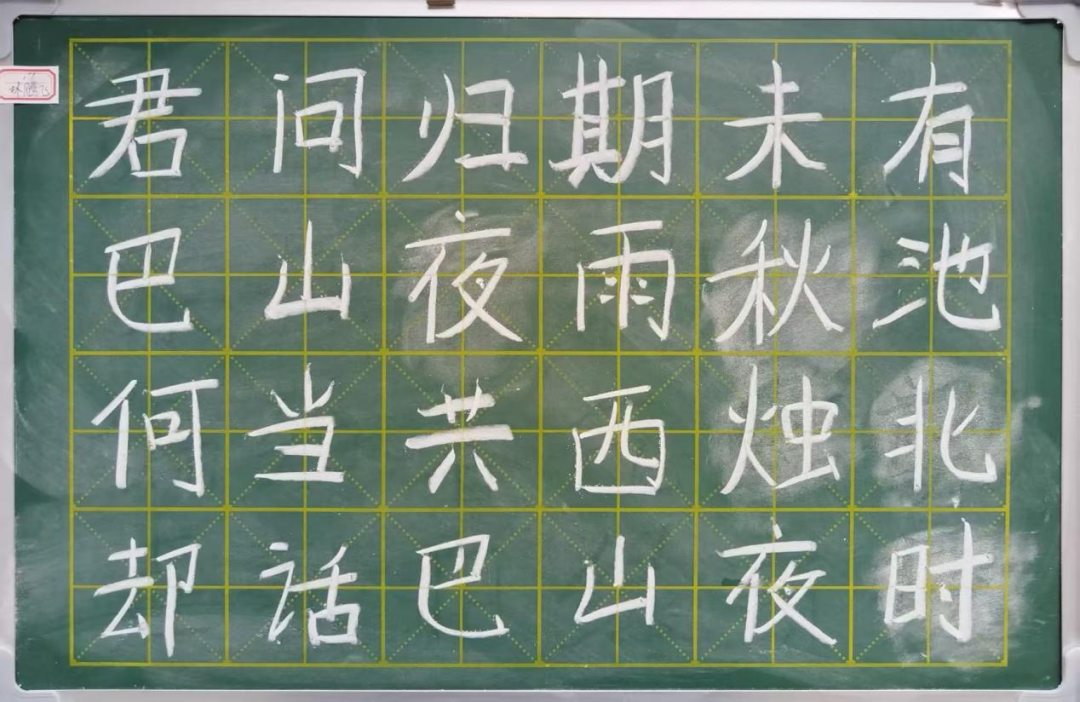 君问归期未有
巴山夜雨秋池
何当共西烛北
却话巴山夜时
林腾飞